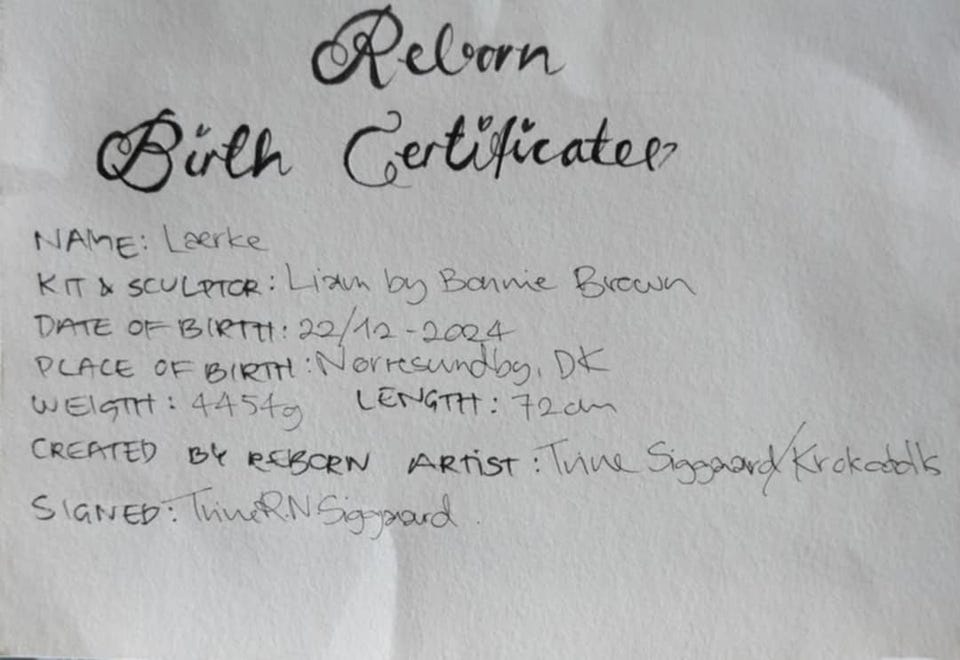 Reborn
Birth Certificate
NAME: Laerke
KIT & SCULPTOR: Liam by Bonnie Brown
DATE OF BIRTH: 22/12-2024
PLACE OF BIRTH: Nørresundby, DK
WEIGTH: 4454g LENGTH: 72cm
CREATED BY REBORN ARTIST: Trine Siggaard/Krokodolls
SIGNED: Trine R.N Siggaard.